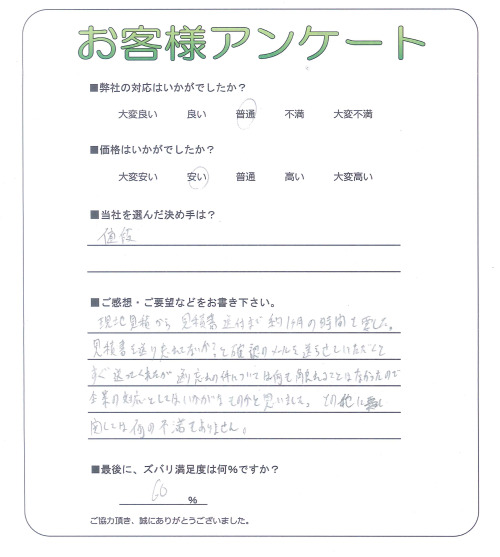 お客様アンケート
■弊社の対応はいかがでしたか？
大変良い 良い 普通 不満 大変不満
■価格はいかがでしたか？
大変安い 安い 普通 高い 大変高い
■当社を選んだ決め手は？
価格
■ご感想・ご要望などをお書き下さい。
現地見積から 見積書送付まで 約1ヶ月の時間を要した。
見積書を送り忘れてないか？と確認のメールを送らせていただくと
すぐ送ってくれたが 送り忘れの件については何も触れることはなかったので
企業の対応としてはいかがなものかと思いました。その他に
関しては何の不満もありません。
■最後に、ズバリ満足度は何％ですか？
60 %
ご協力頂き、誠にありがとうございました。